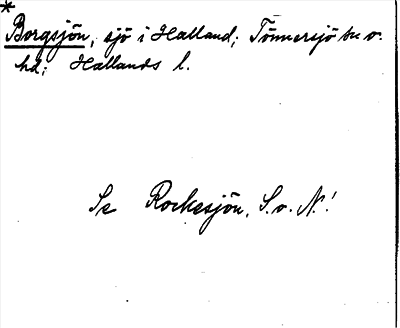 *
Borgsjön, sjö i Halland; Tönnersjö sn o.
hd; Hallands l.
Se Rockesjön, S.v.N.!